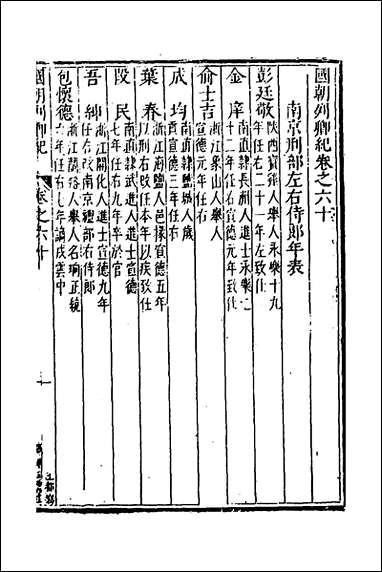 國朝列卿紀卷之六十
南京刑部左右侍郎年表
彭廷敬
陝西寶雞人舉人永樂十九
年任右二十一年左致仕
金庠
南直隸長洲人進士永樂二
十二年任右宣德元年致仕
俞士吉
浙江象山人舉人
宣德元年任右
成均
南直隸鹽城人歲
貢宣德三年任右
葉春
浙江海鹽人邑掾宣德五年
以刑右改任本年以疾致仕
段民
南直隸武進人進士宣德
七年任右九年卒於官
吾紳
浙江開化人進士宣德九年
任右改南京禮部右侍郎
包懷德
浙江蘭谿人舉人名瑜正統
年任右七年謫戍雲中
國朝列卿紀
卷之六十
一